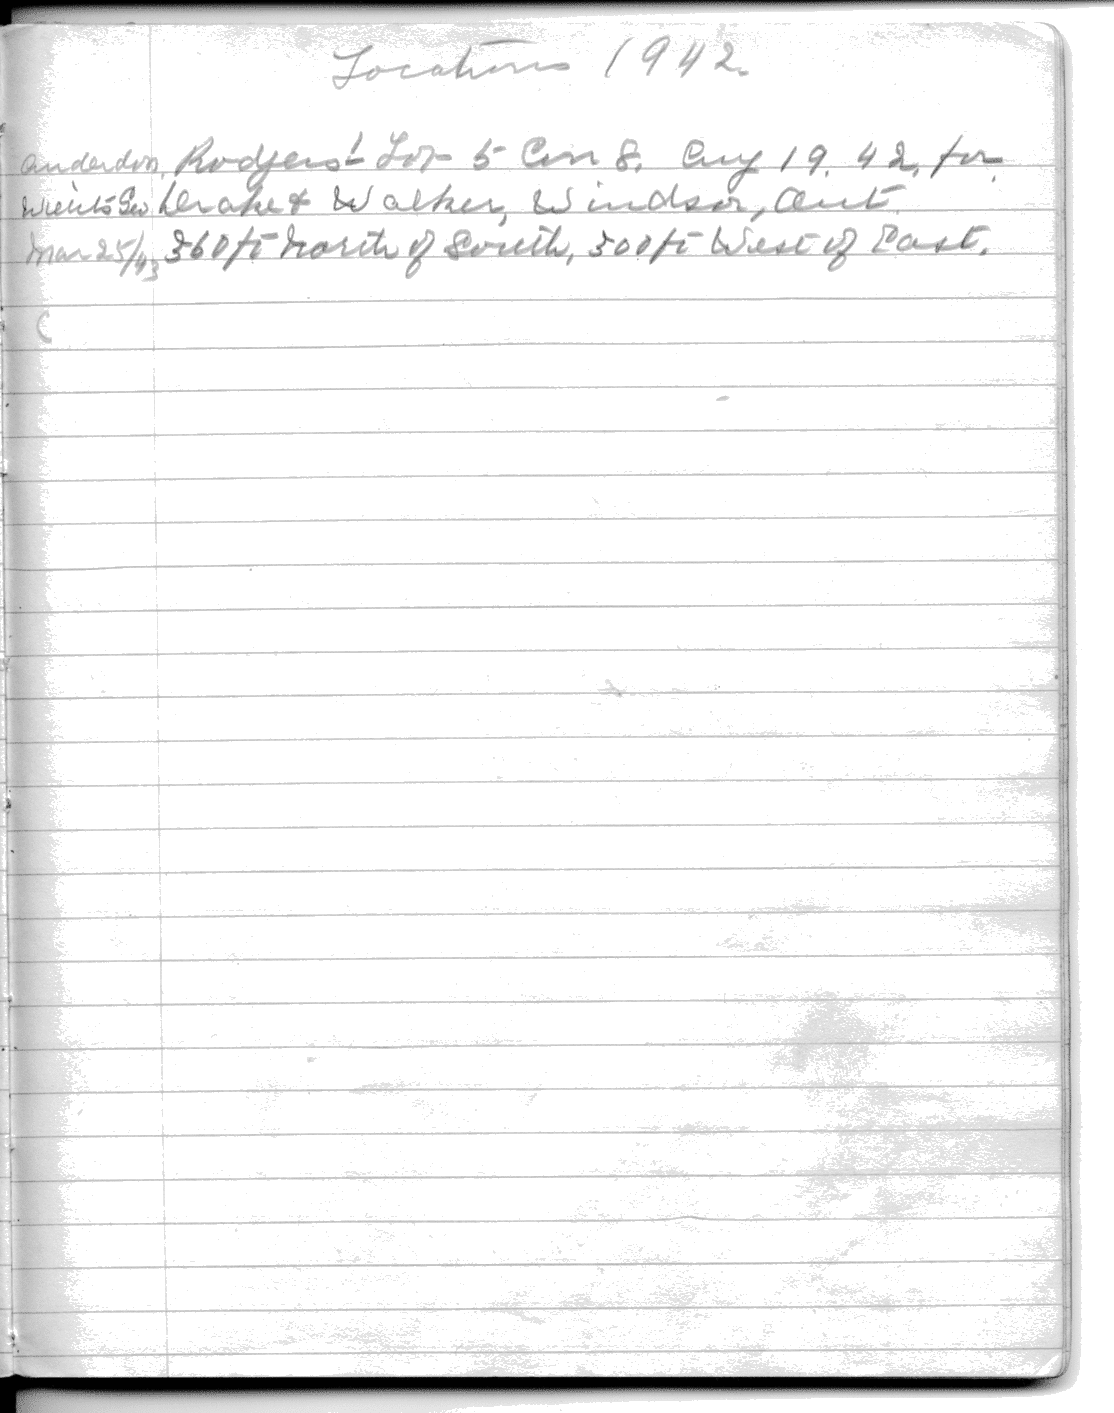 Locations 1942.
Anderdon, Rodgers' Lot 5 Con 8. Aug 19. 42, for
Drake & Walker, Windsor, Ont.
Mar 25/43 360 ft North of South, 500 ft West of East.